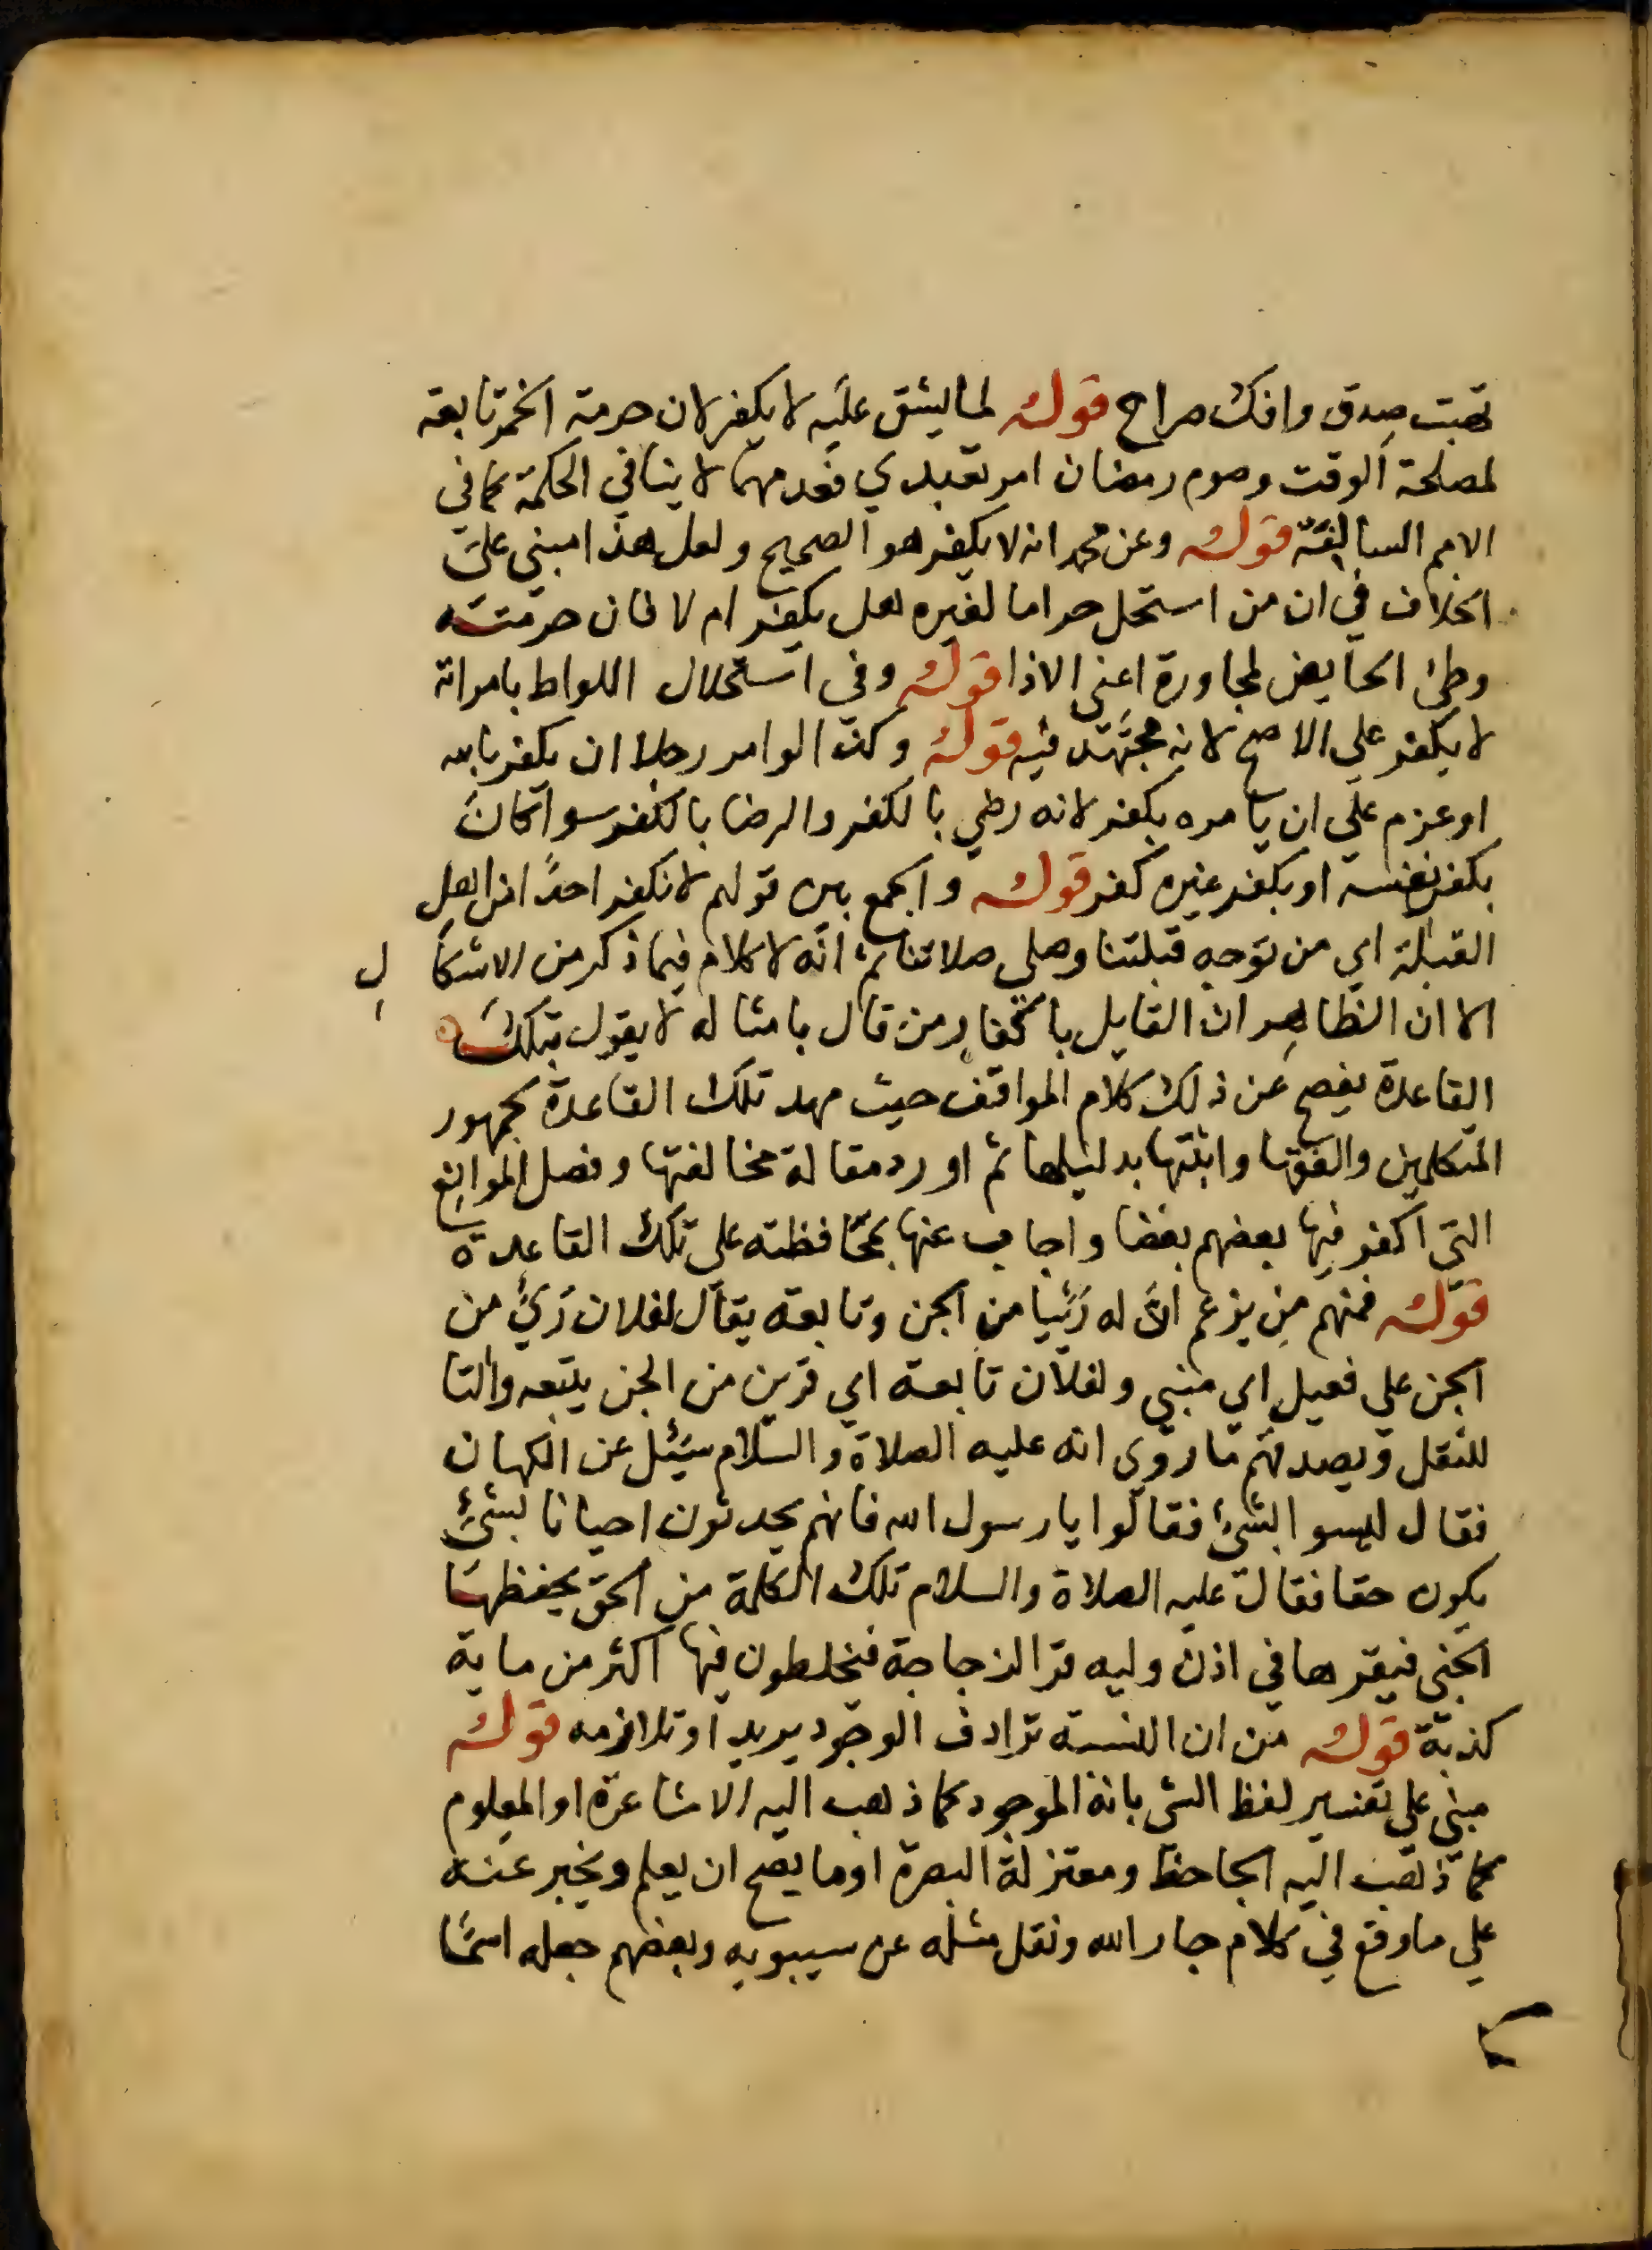 تحبت صدق وافك صراح قوله لما يشق عليه لا يكفر لان حرمة الخمر تابعة
لمصلحة الوقت وصوم رمضان امر تعبدي فعدمهما لا ينافي الحكمة كما في
الامم السالفة قوله وعن محمد انه لا يكفر هو الصحيح ولعل هذا مبني على
الخلاف في ان من استحل حراما لغيره هل يكفر ام لا فان حرمته
وطئ الحايض لمجاورة اعني الاذا قوله وفي استحلال اللواط بامراته
لا يكفر علي الاصح لانه مجتهد فيه قوله وكذا لوامر رجلا ان يكفر بالله
او عزم علي ان يامره بكفر لانه رضي بالكفر والرضا بالكفر سوا كان
بكفر نفسه او بكفر غيره كفر قوله والجمع بين قولهم لا نكفر احدا من اهل
القبلة اي من توجه قبلتنا وصلى صلاتنا ثم انه لا كلام فيما ذكر من الاشكال
الا ان الظاهر ان القايل باكفار من قال بامثاله لا يقول بتلك
القاعدة يفصح عن ذلك كلام المواقف حيث مهد تلك القاعدة لجمهور
المتكلمين والفقها واثبتها بدليلها ثم اورد مقالة مخالفتها وفصل المواضع
التي اكفر فيها بعضهم بعضا واجاب عنها بمحافظته على تلك القاعدة
قوله فمنهم من يزعم ان له رئيا من الجن وتابعة يقال لفلان رئي من
الجن علي فعيل اي منبي ولفلان تابعة اي قرين من الجن يتبعه والتا
للنقل ويصدقهم ما روي انه عليه الصلاة والسلام سئل عن الكهان
فقال ليسوا بشئ فقالوا يا رسول الله فانهم يحدثون احيانا بشئ
يكون حقا فقال عليه الصلاة والسلام تلك الكلمة من الحق يحفظها
الجني فيقرها في اذن وليه قر الزجاجة فيخلطون فيها اكثر من ماية
كذبة قوله من ان النسبة ترادف الوجود يريد او تلازمه قوله
مبني علي تفسير لفظ الشى بانه الموجود كما ذهب اليه الاشاعرة او المعلوم
كما ذهب اليه الجاحظ ومعتزلة البصرة او ما يصح ان يعلم ويخبر عنه
علي ما وقع في كلام جار الله ونقل مثله عن سيبويه وبعضهم جعله اسما